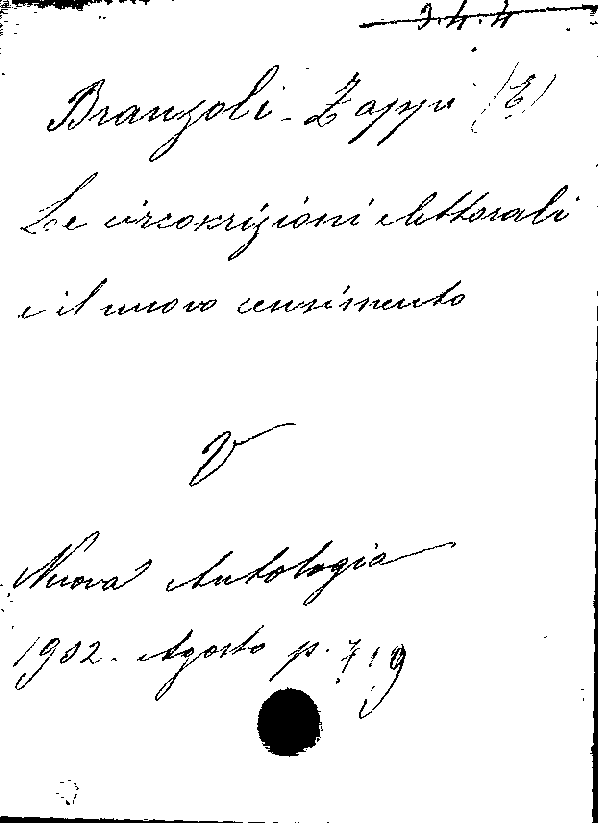 3.4.4
Branzoli-Zappi (E)
Le circoscrizioni elettorali
e il nuovo censimento
V
Nuova Antologia
1902. Agosto p. 719